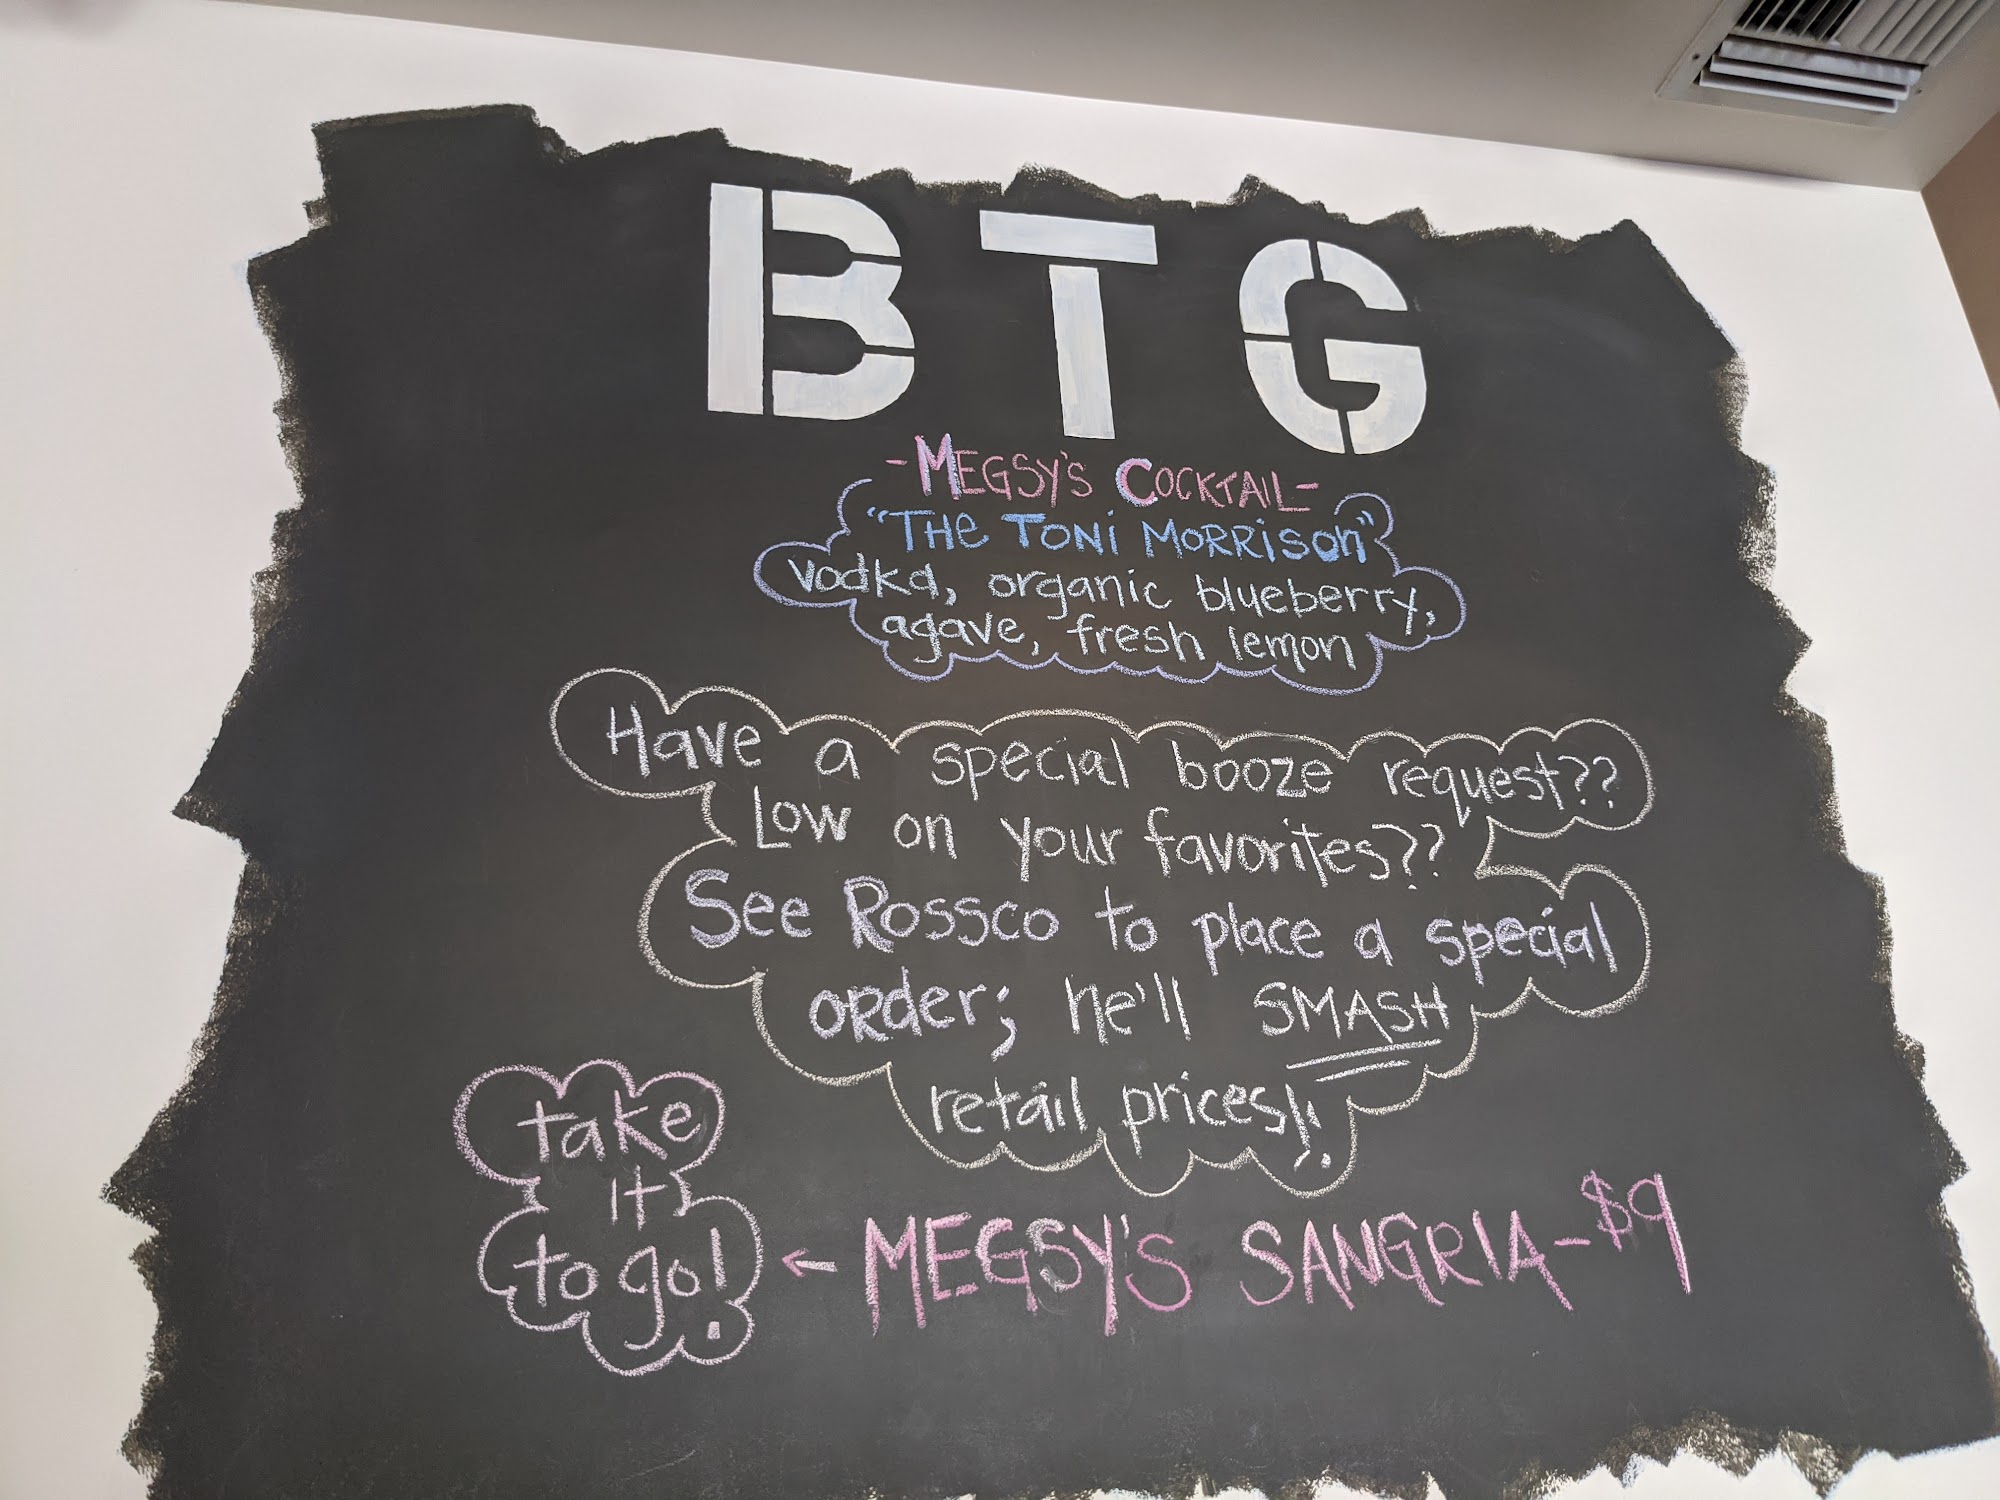 BTG
-MEGSY'S COCKTAIL-
"THE TONI MORRISON"
vodka, organic blueberry,
agave, fresh lemon
Have a special booze request??
Low on your favorites??
See Rossco to place a special
order; he'll SMASH
retail prices!!
take
it
to go!
← MEGSY'S SANGRIA-$9